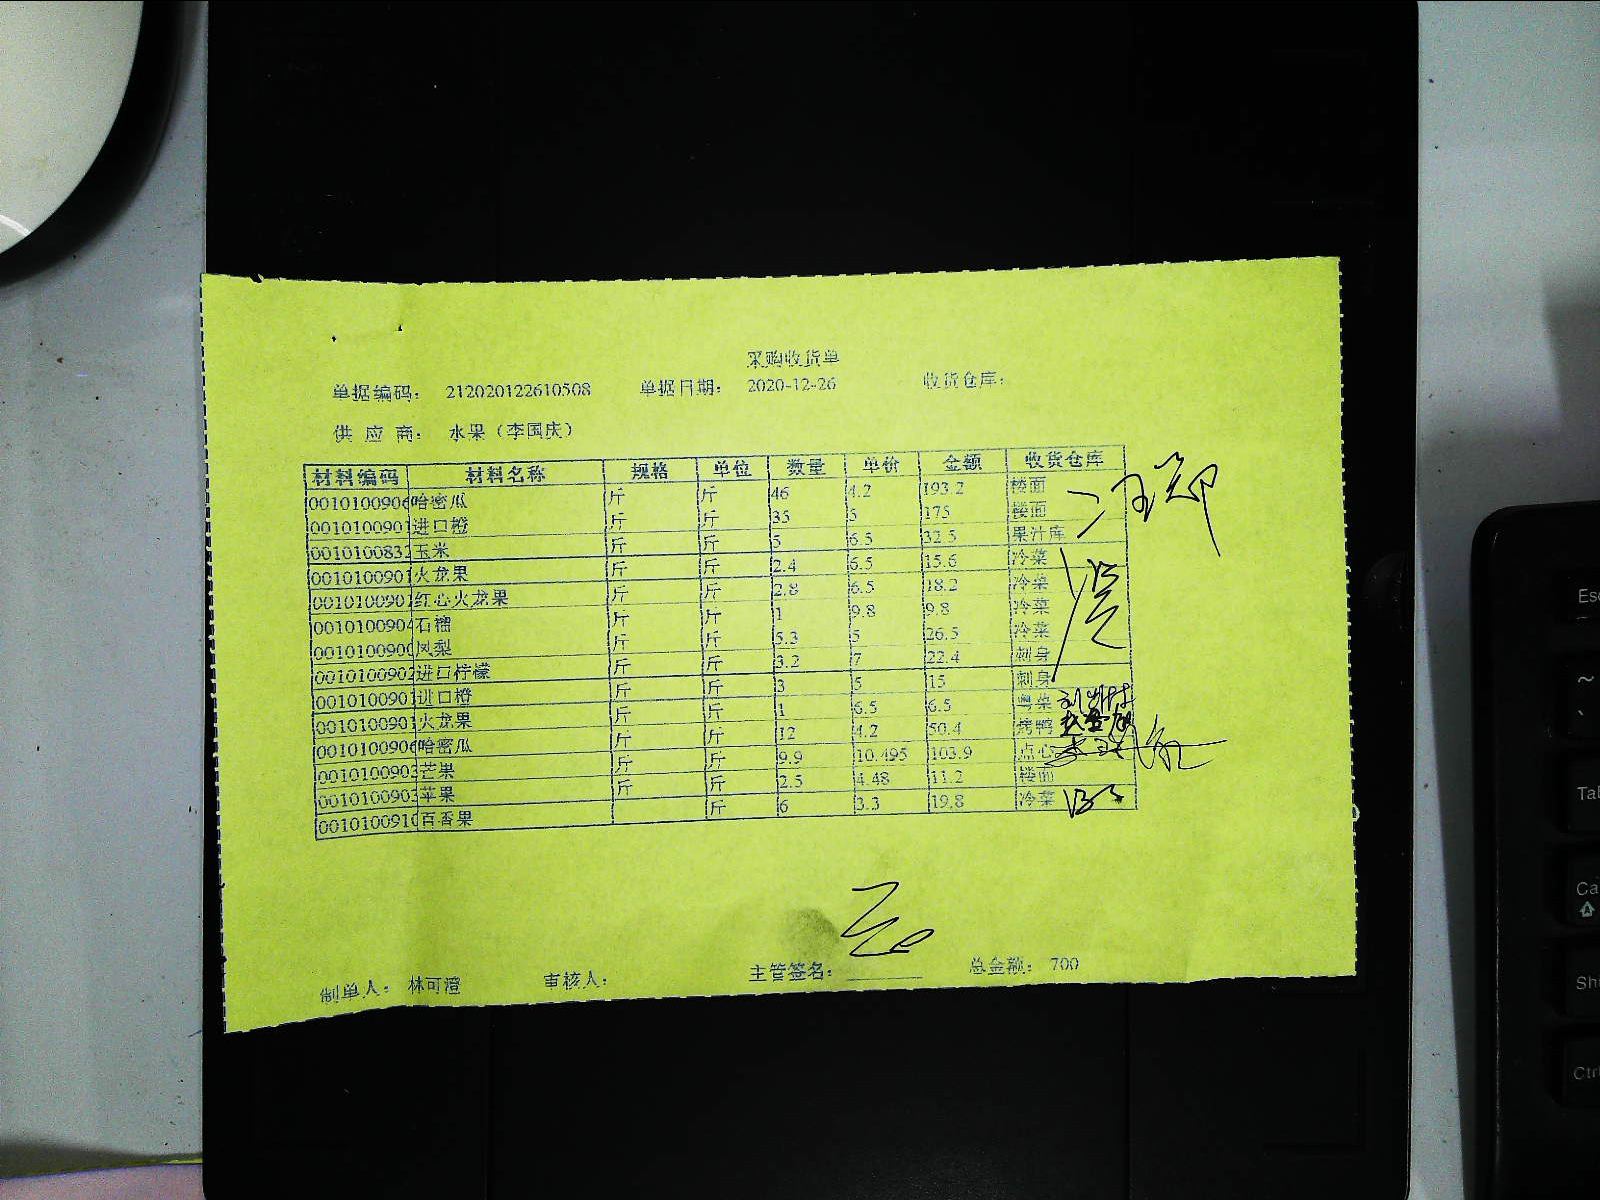 采购收货单
单据编码： 212020122610508 单据日期： 2020-12-26 收货仓库：
供 应 商： 水果（李国庆）
材料编码 材料名称 规格 单位 数量 单价 金额 收货仓库
0010100906 哈密瓜 斤 斤 46 4.2 193.2 楼面
001010090 进口橙 斤 斤 35 5 175 楼面
001010083 玉米 斤 斤 5 6.5 32.5 果汁库
001010090 火龙果 斤 斤 2.4 6.5 15.6 冷菜
001010090 红心火龙果 斤 斤 2.8 6.5 18.2 冷菜
0010100904 石榴 斤 斤 1 9.8 9.8 冷菜
0010100900 凤梨 斤 斤 5.3 5 26.5 冷菜
001010090 进口柠檬 斤 斤 3.2 7 22.4 刺身
001010090 进口橙 斤 斤 3 5 15 刺身
001010090 火龙果 斤 斤 1 6.5 6.5 粤菜
0010100906 哈密瓜 斤 斤 12 4.2 50.4 烤鸭
0010100903 芒果 斤 斤 9.9 10.495 103.9 点心
0010100903 苹果 斤 斤 2.5 4.48 11.2 楼面
0010100910 百香果 斤 6 3.3 19.8 冷菜
制单人： 林可澄 审核人： 主管签名： 总金额： 700
Esc
~
`
Tab
Ca
Shi
Ctrl